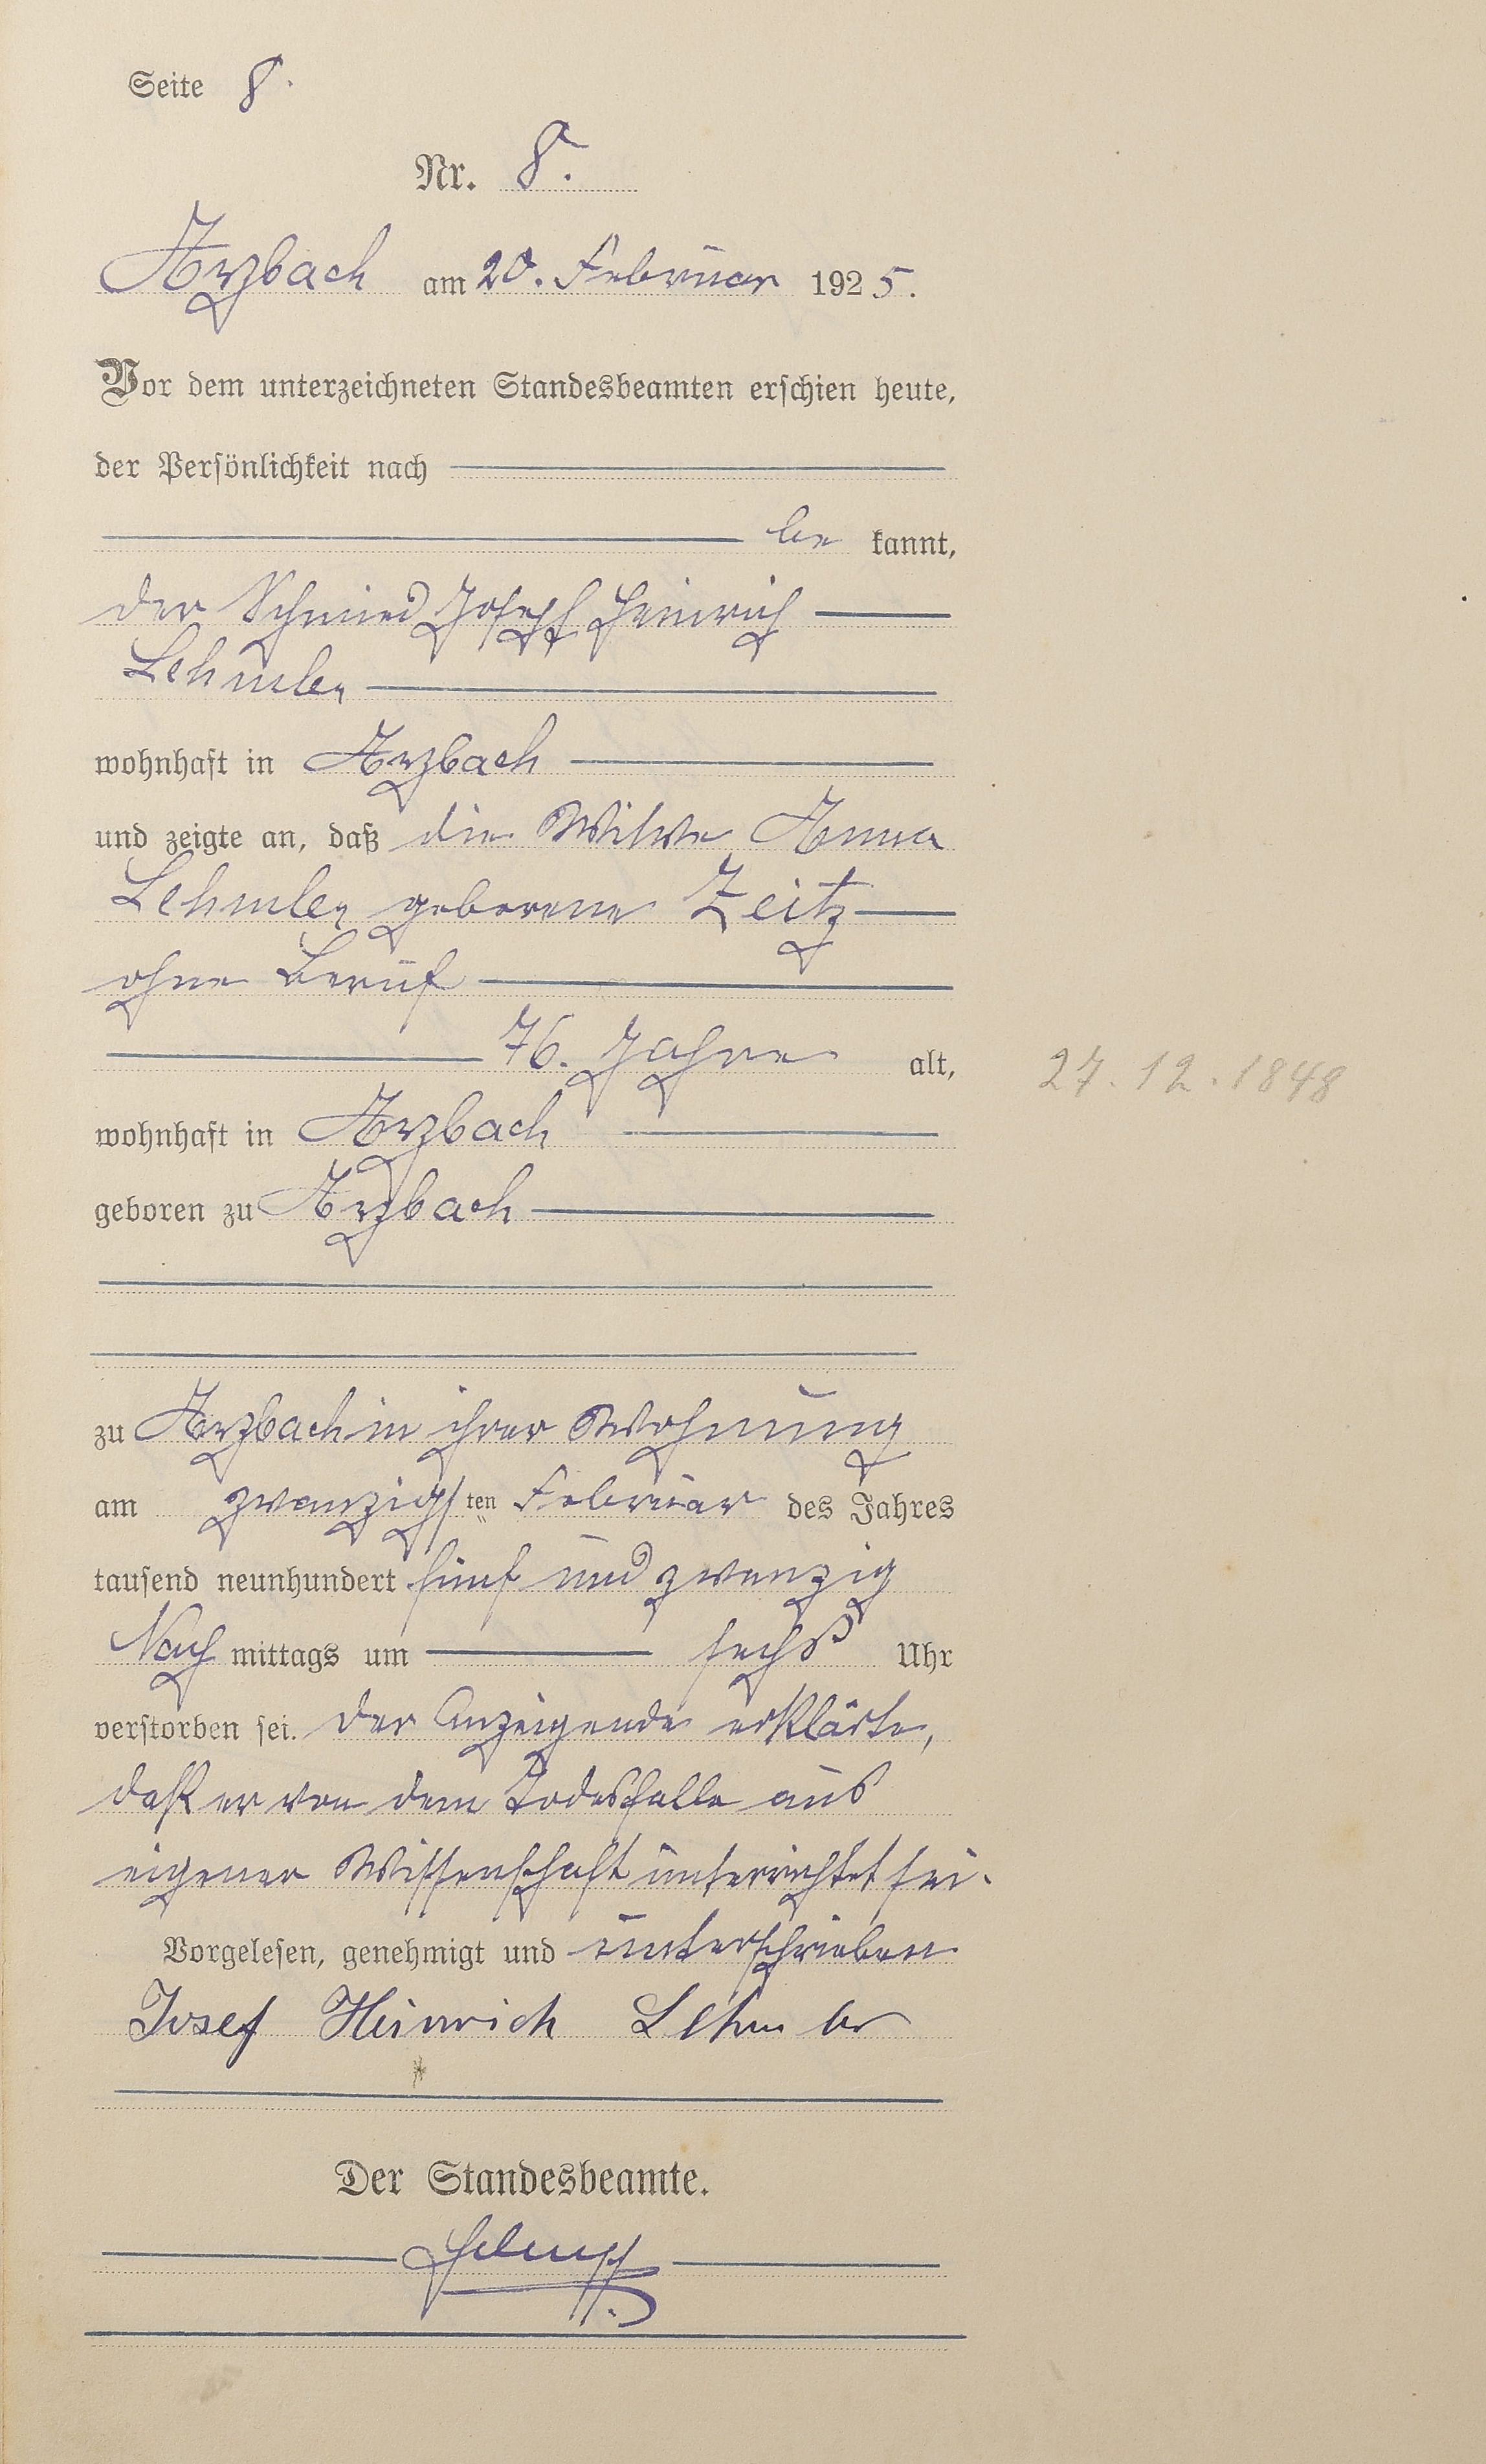 Seite 8.
Nr. 8.
Arzbach am 20. Februar 1925.
Vor dem unterzeichneten Standesbeamten erschien heute,
der Persönlichkeit nach
be kannt,
der Schmied Joseph Heinrich
Lehmler
wohnhaft in Arzbach
und zeigte an, daß die Witwe Anna
Lehmler geborene Zeitz
ohne Beruf
76. Jahre alt,
27.12.1848
wohnhaft in Arzbach
geboren zu Arzbach
zu Arzbach in ihrer Wohnung
am zwanzigsten Februar des Jahres
tausend neunhundert fünf und zwanzig
Nach mittags um sechs Uhr
verstorben sei. Der Anzeigende erklärte,
daß er von dem Todesfalle aus
eigener Wissenschaft unterrichtet sei.
Vorgelesen, genehmigt und unterschrieben
Josef Heinrich Lehmler
Der Standesbeamte.